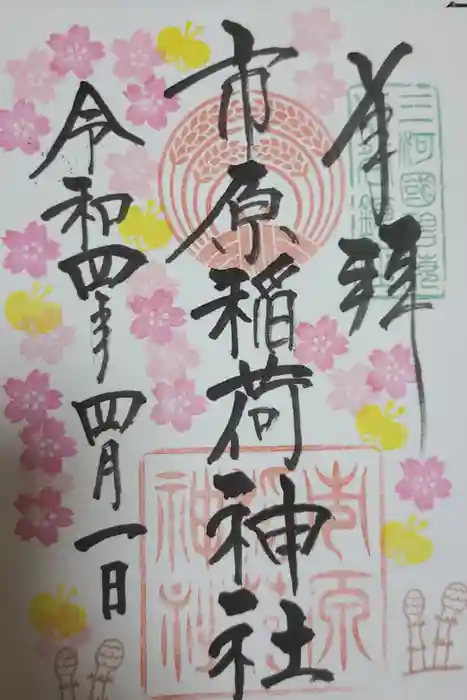 奉拝
三河國
市原稲荷神社
市原
稲荷
神社
令和四年四月一日